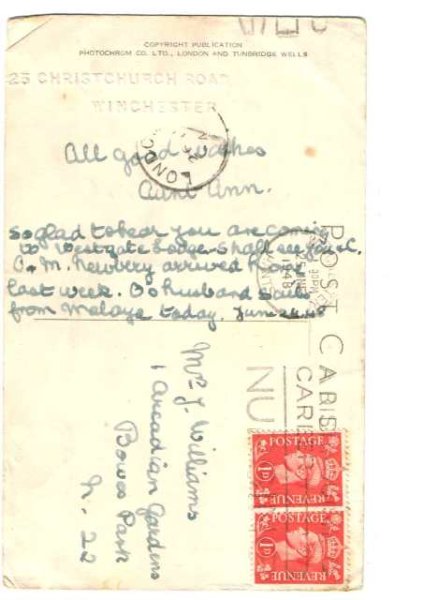 COPYRIGHT PUBLICATION
PHOTOCHROM CO. LTD., LONDON AND TUNBRIDGE WELLS
25 CHRISTCHURCH ROAD
WINCHESTER
All good wishes
Aunt Ann.
So glad to hear you are coming
to Westgate Lodge. Shall see you
M. Newbery arrived home
last week. husband sails
from Malaya today. June 24.48
POST CARD
LONDON
JNE
1948
Mr J. Williams
1 Arcadian Gardens
Bowes Park
N. 22
POSTAGE
1D 1D
REVENUE
POSTAGE
1D 1D
REVENUE